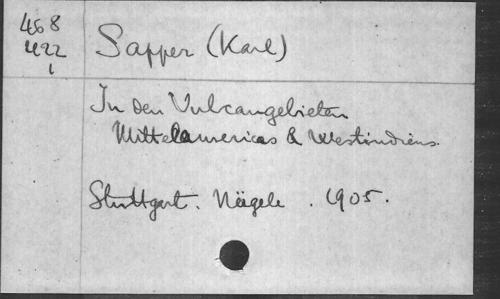 468
422
1
Sapper (Karl)
In den Vulcangebieten
Mittelamericas & Westindiens.
Stuttgart. Nägele. 1905.